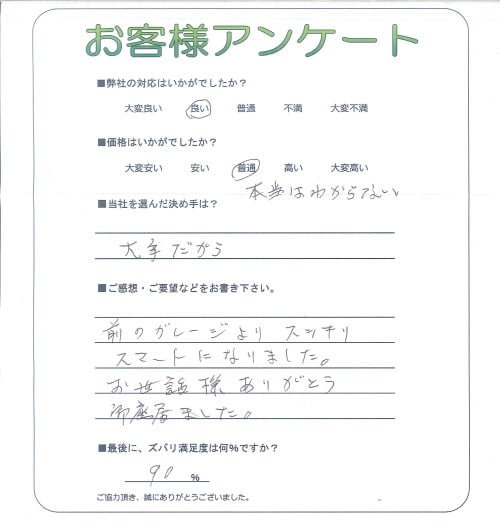 お客様アンケート
■弊社の対応はいかがでしたか？
大変良い 良い 普通 不満 大変不満
■価格はいかがでしたか？
大変安い 安い 普通 高い 大変高い
本当はわからない
■当社を選んだ決め手は？
大手だから
■ご感想・ご要望などをお書き下さい。
前のガレージより スッキリ
スマートになりました。
お世話様ありがとう
御座居ました。
■最後に、ズバリ満足度は何%ですか？
90 %
ご協力頂き、誠にありがとうございました。